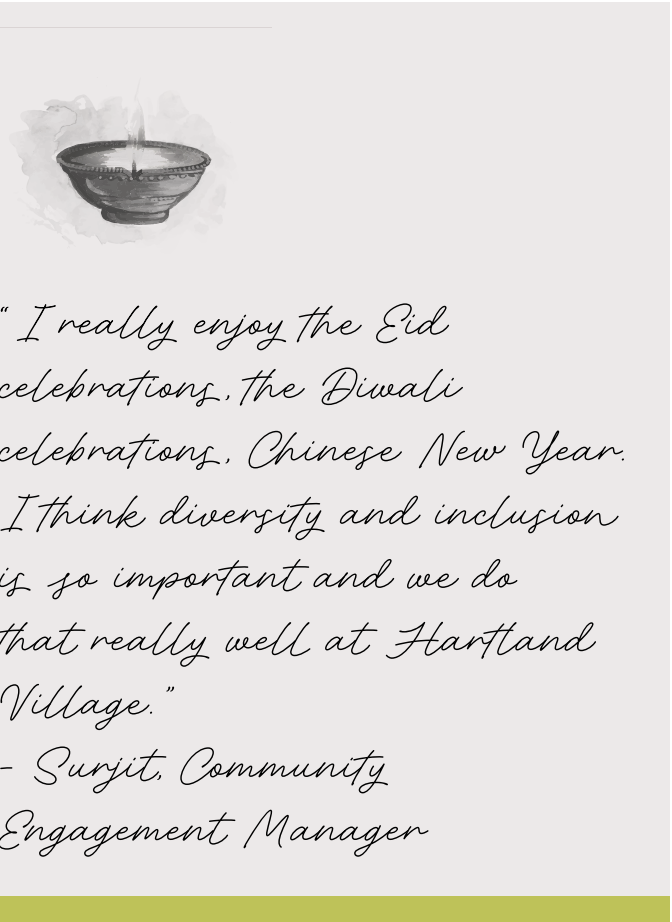 “ I really enjoy the Eid
celebrations, the Diwali
celebrations, Chinese New Year.
I think diversity and inclusion
is so important and we do
that really well at Hartland
Village.”
- Surjit, Community
Engagement Manager